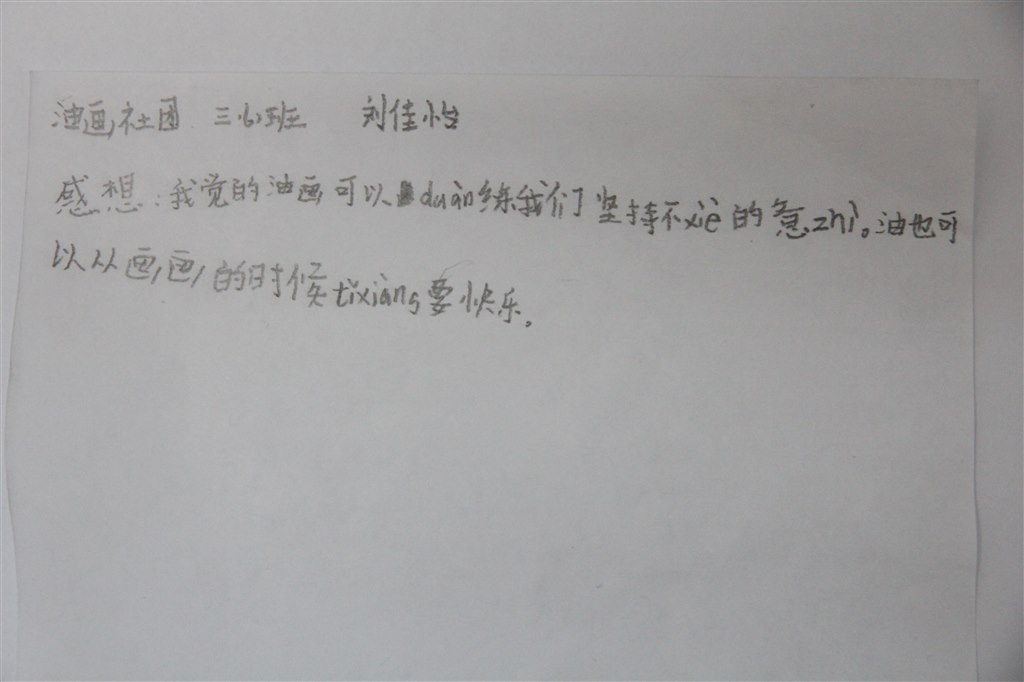 油画社团 三(6)班 刘佳怡
感想:我觉的油画可以duàn练我们坚持不xiè的意zhì。油也可
以从画画的时候tǐxiàng要快乐.